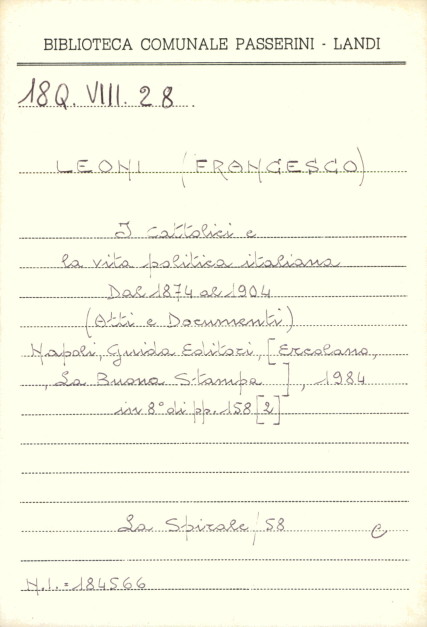 BIBLIOTECA COMUNALE PASSERINI - LANDI
18Q. VIII. 28.
LEONI (FRANCESCO)
I cattolici e
la vita politica italiana
Dal 1874 al 1904
(Atti e Documenti)
Napoli, Guida Editori, [Ercolano,
, La Buona Stampa ], 1984
in 8° di pp. 158 [2]
La Spirale / 58
C
N.I. = 184566